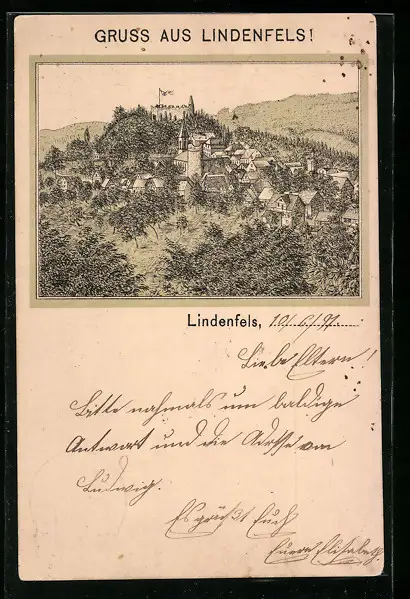 GRUSS AUS LINDENFELS!
Lindenfels, 10/6/97.
Liebe Eltern!
Bitte nochmals um baldige
Antwort und die Adresse von
Ludwig.
Es grüßt Euch
Eure Elisabeth.